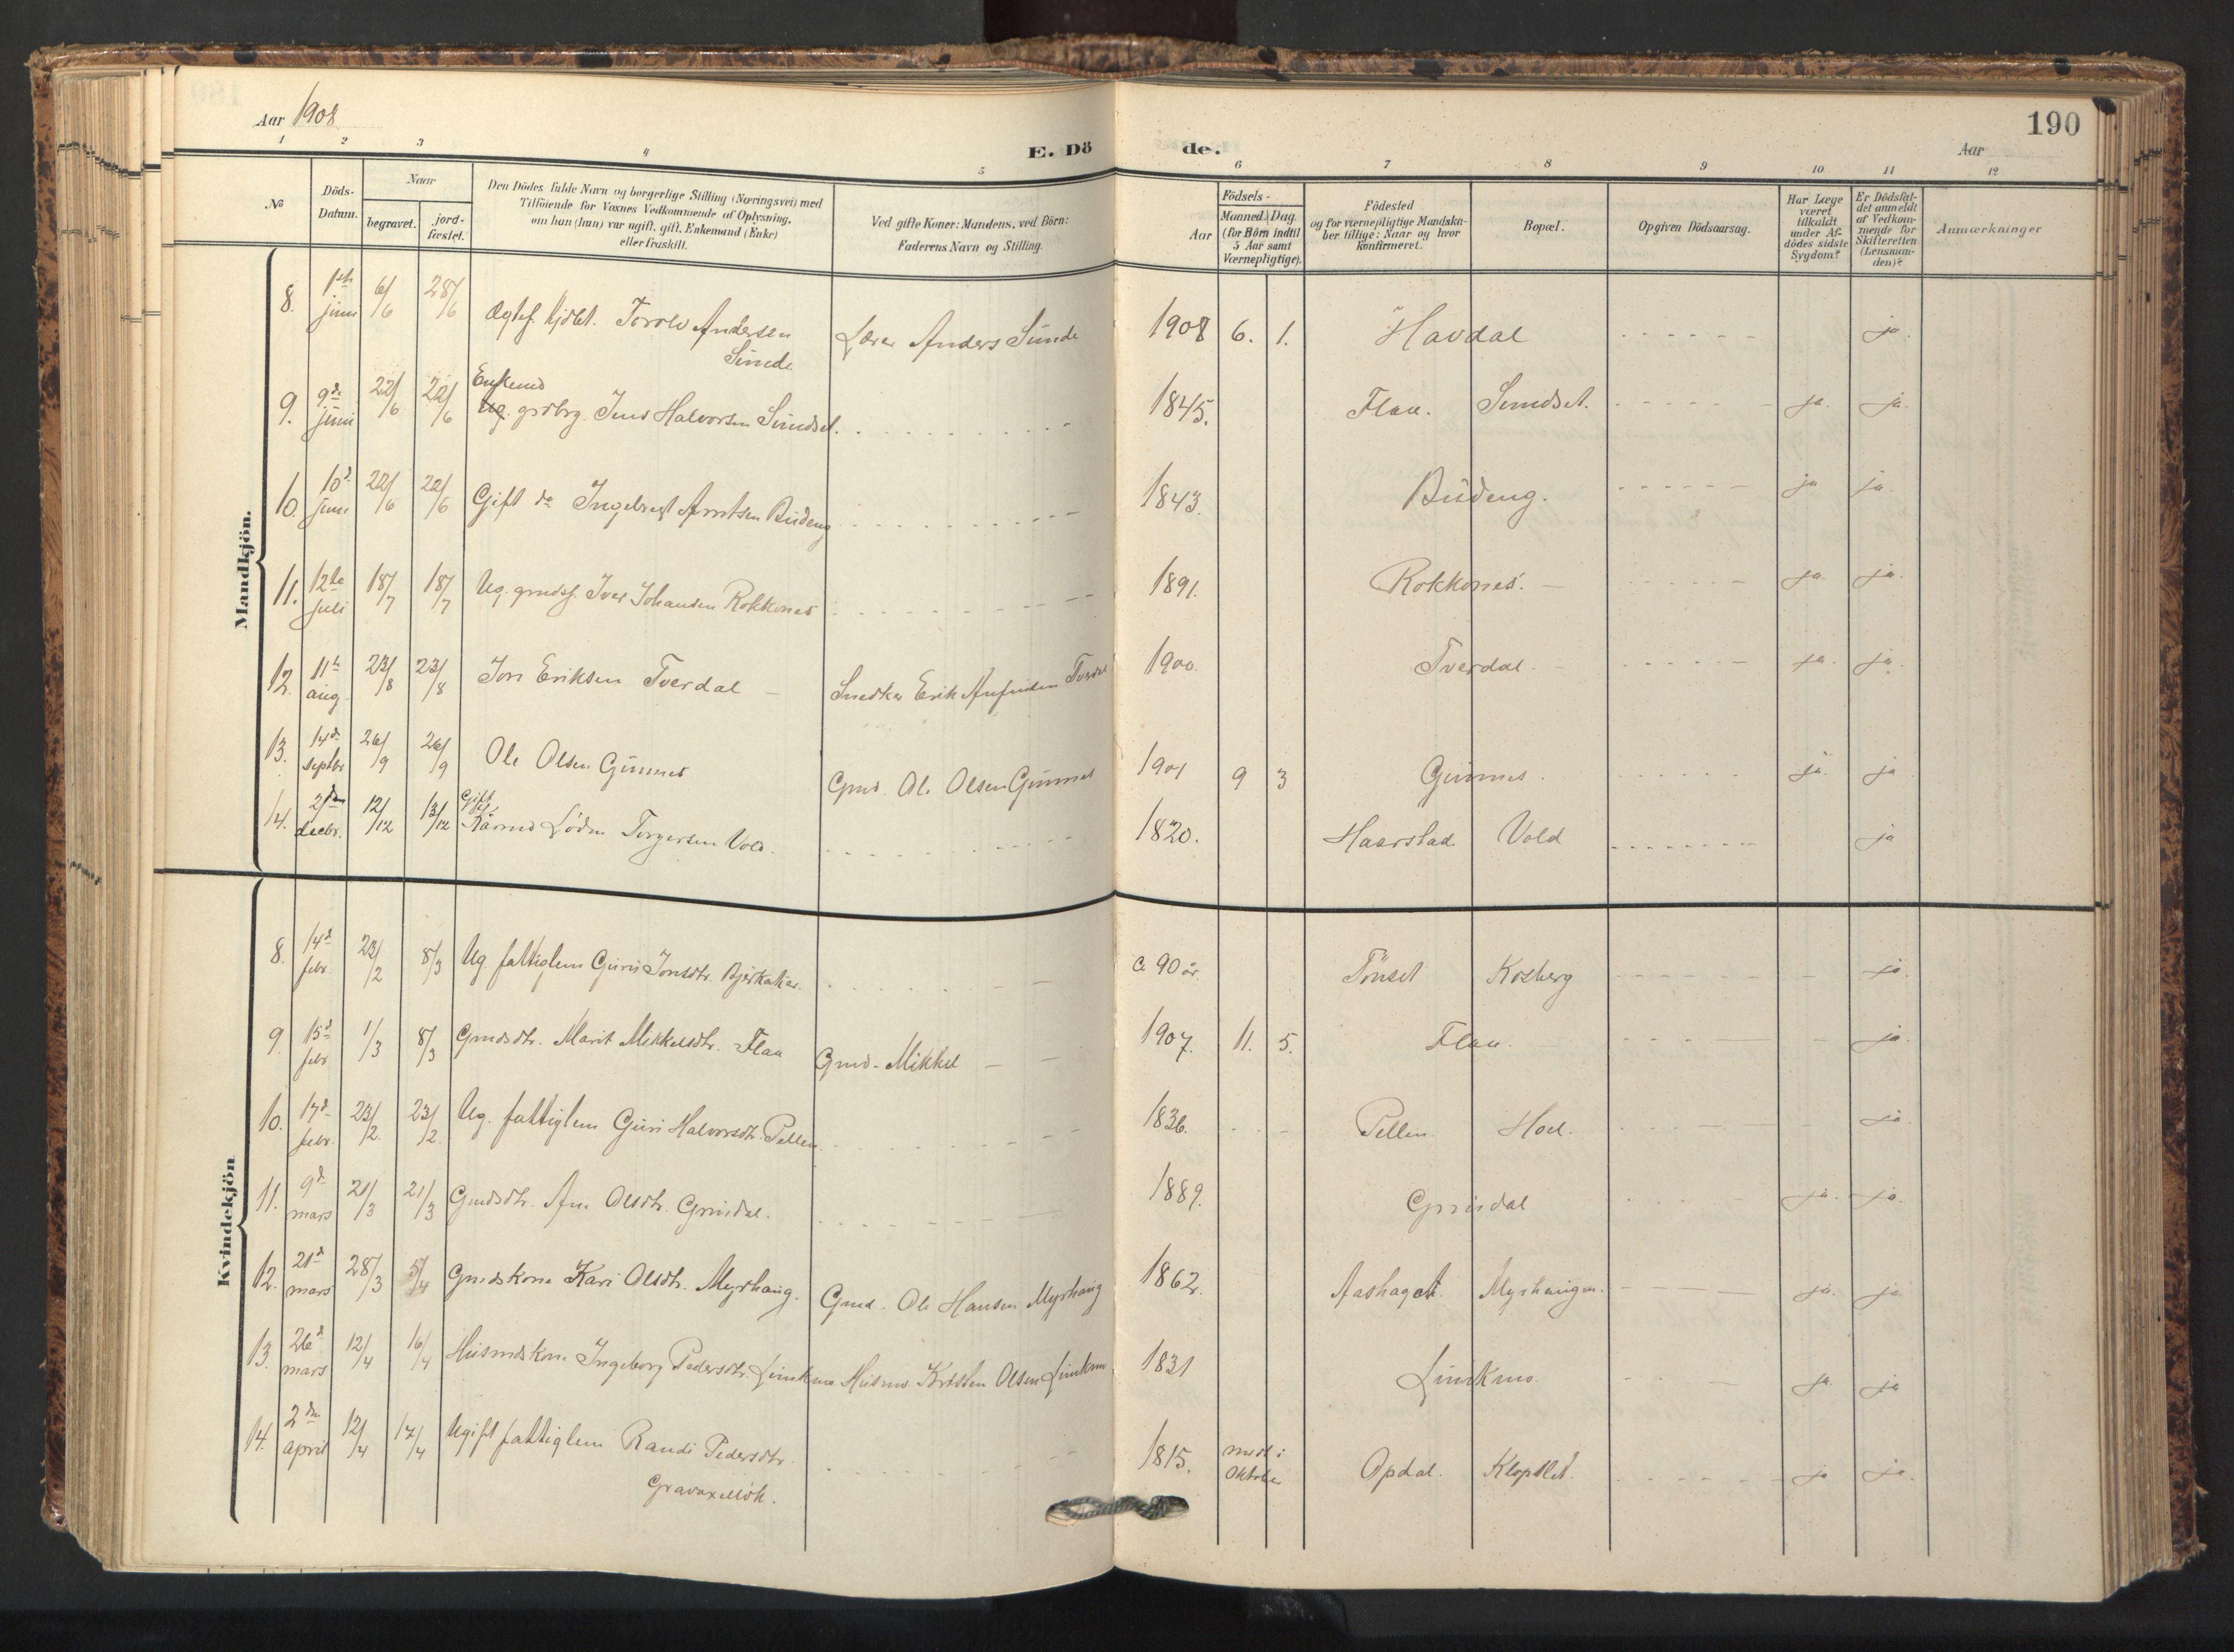 Aar 1908
E. Dö
de.
Aar
190
1 2 3 4 5 6 7 8 9 10 11 12
№
Döds-
Datum.
Naar
begravet.
jord-
fæstet.
Den Dödes fulde Navn og borgerlige Stilling (Næringsvei) med
Tilföiende for Voxnes Vedkommende af Oplysning,
om han (hun) var ugift, gift, Enkemand (Enke)
eller fraskilt.
Ved gifte Koner: Mandens, ved Börn:
Faderens Navn og Stilling.
Födsels-
Aar
Maaned. Dag.
(for Börn indtil
5 Aar samt
Værnepligtige).
Födested
og for værnepligtige Mandska-
ber tillige: Naar og hvor
konfirmeret.
Bopæl.
Opgiven Dödsaarsag.
Har Læge
været
tilkaldt
under Af-
dödes sidste
Sygdom?
Er Dödsfal-
det anmeldt
af Vedkom-
mende for
Skifteretten
(Lensman-
den)?
Anmærkninger
Mandkjön.
8. 1ste juni 6/6 28/6 Ægtef. Torolv Andersen Sunde Lærer Anders Sunde 1908 6. 1. Havdal ja.
9. 9de juni 22/6 22/6 Enkemd Ug. grdbrg. Jens Halvorsen Sundset. 1845. Flaa. Sundset. ja. ja.
10. 10d juni 22/6 22/6 Gift do Ingebregt Arntsen Budeng 1843. Budeng. ja ja.
11. 12te juli 18/7 18/7 Ug. grmdss. Iver Johansen Rokkones 1891. Rokkones. ja. ja.
12. 11te aug. 23/8 23/8 Jon Eriksen Tverdal Snedker Erik Tverdal 1900. Tverdal. ja. ja.
13. 14de septbr 26/9 26/9 Ole Olsen Gunnes Grmd. Ole Olsen Gunnes 1901 9 3 Gunnes. ja. ja
14. 2den decbr. 12/12 13/12 Gift Torgersen Vold. 1820. Haarstad. Vold ja
Kvindekjön
8. 14d febr. 23/2 8/3 Ug. fattiglem Guru Jonsdtr. Bjerkaker. c. 90 år. Tönset Kosberg ja.
9. 15d febr 1/3 8/3 Grmdsdtr. Marit Mikkelsdtr. Flaa Grmd. Mikkel 1907. 11. 5. Flaa. ja.
10. 17d febr. 23/2. 23/2. Ug. fattiglem Guri Halvorsdtr. Pellen 1836. Pellen. Hoel. ja.
11. 9d mars 21/3 21/3 Grmdsdtr. Ane Olsdtr. Grindal. 1889. Grindal ja. ja.
12. 21d mars 28/3 5/4 Grmdskone Kari Olsdtr. Myrhaug. Grmd. Ole Hansen Myrhaug 1862. Aashaget. Myrhaugen. ja. ja
13. 26d mars 12/4 16/4 Husmdskone Ingeborg Pedersdtr. Husmd. Kristen Olsen 1831 ja. ja
14. 2den april 12/4 17/4 Ugift fattiglem Randi Pedersdtr. 1815. midt i Oktober Opdal. ja ja.